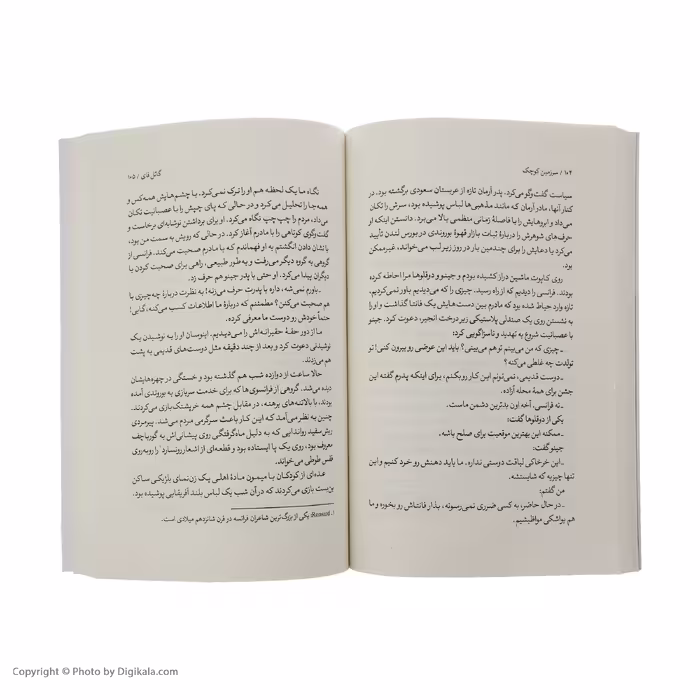 ۱۰۴ / سرزمین کوچک
سیاست گفت‌وگو می‌کرد. پدر آرمان تازه از عربستان سعودی برگشته بود. در
کنار آن‌ها، مادر آرمان که مانند مذهبی‌ها لباس پوشیده بود، سرش را تکان
می‌داد و ابروهایش را با فاصلهٔ زمانی منظمی بالا می‌برد. دانستن اینکه او
حرف‌های شوهرش را دربارهٔ ثبات بازار قهوهٔ بوروندی در بورس لندن تأیید
می‌کرد یا دعایش را برای چندمین بار در روز زیر لب می‌خواند، غیرممکن
بود.
روی کاپوت ماشین دراز کشیده بودم و جینو و دوقلوها مرا احاطه کرده
بودند. فرانسی را دیدیم که از راه رسید. چیزی را که می‌دیدیم باور نمی‌کردیم.
تازه وارد حیاط شده بود که مادرم بین دست‌هایش یک فانتا گذاشت و او را
به نشستن روی یک صندلی پلاستیکی زیر درخت انجیر، دعوت کرد. جینو
با عصبانیت شروع به تهدید و ناسزاگویی کرد:
ـ چیزی که من می‌بینم تو هم می‌بینی؟ باید این عوضی رو بیرون کنی! تو
تولدت چه غلطی می‌کنه؟
ـ دوست قدیمی، نمی‌تونم این کار رو بکنم، برای اینکه پدرم گفته این
جشن برای همهٔ محله آزاده.
ـ نه فرانسی. آخه اون بدترین دشمن ماست.
یکی از دوقلوها گفت:
ـ ممکنه این بهترین موقعیت برای صلح باشه.
جینو گفت:
ـ این خرخاکی لیاقت دوستی نداره. ما باید دهنش رو خرد کنیم و این
تنها چیزیه که شایستشه.
من گفتم:
ـ در حال حاضر، به کسی ضرری نمی‌رسونه. بذار فانتاش رو بخوره و ما
هم یواشکی مواظبشیم.
گائل فای / ۱۰۵
نگاه ما یک لحظه هم او را ترک نمی‌کرد. با چشم‌هایش همه‌کس و
همه‌جا را تحلیل می‌کرد و در حالی که پای چپش را با عصبانیت تکان
می‌داد، مردم را چپ‌چپ نگاه می‌کرد. او برای برداشتن نوشابه‌ای برخاست و
گفت‌وگوی کوتاهی را با مادرم آغاز کرد. در حالی که رویش به سمت من بود،
با نشان دادن انگشتم به او فهماندم که با مادرم صحبت می‌کند. فرانسی از
گروهی به گروه دیگر می‌رفت و به طور طبیعی، راهی برای صحبت کردن با
دیگران پیدا می‌کرد. او حتی با پدر جینو هم حرف زد.
ـ باورم نمی‌شه، داره با پدرت حرف می‌زنه! به نظرت دربارهٔ چه‌چیزی با
هم صحبت می‌کنن؟ مطمئنم که دربارهٔ ما اطلاعات کسب می‌کنه، گابی!
حتماً خودش رو دوست ما معرفی کرده.
ما از دور حقهٔ حقیرانه‌اش را می‌دیدیم. اینوسان او را به نوشیدن یک
نوشیدنی دعوت کرد و بعد از چند دقیقه مثل دوست‌های قدیمی به پشت
هم می‌زدند.
حالا ساعت از دوازده شب هم گذشته بود و خستگی در چهره‌هایشان
دیده می‌شد. گروهی از فرانسوی‌ها که برای خدمت سربازی به بوروندی آمده
بودند، با بالاتنه‌های برهنه، در مقابل چشم همه خرپشتک‌بازی می‌کردند.
چنین به نظر می‌آمد که این کار باعث سرگرمی مردم می‌شد. پیرمردی
ریش‌سفید رواندایی که به دلیل ماه‌گرفتگی روی پیشانی‌اش به گورباچف
معروف بود، روی یک پا ایستاده بود و قطعه‌ای از اشعار رونسارد۱ را روبه‌روی
قفس طوطی می‌خواند.
عده‌ای از کودکان با میمون مادهٔ اهلی یک زن‌نمای بلژیکی ساکن
بن‌بست بازی می‌کردند که در آن شب یک لباس بلند آفریقایی پوشیده بود.
۱. Ronsard: یکی از بزرگ‌ترین شاعران فرانسه در قرن شانزدهم میلادی است.
Copyright © Photo by Digikala.com